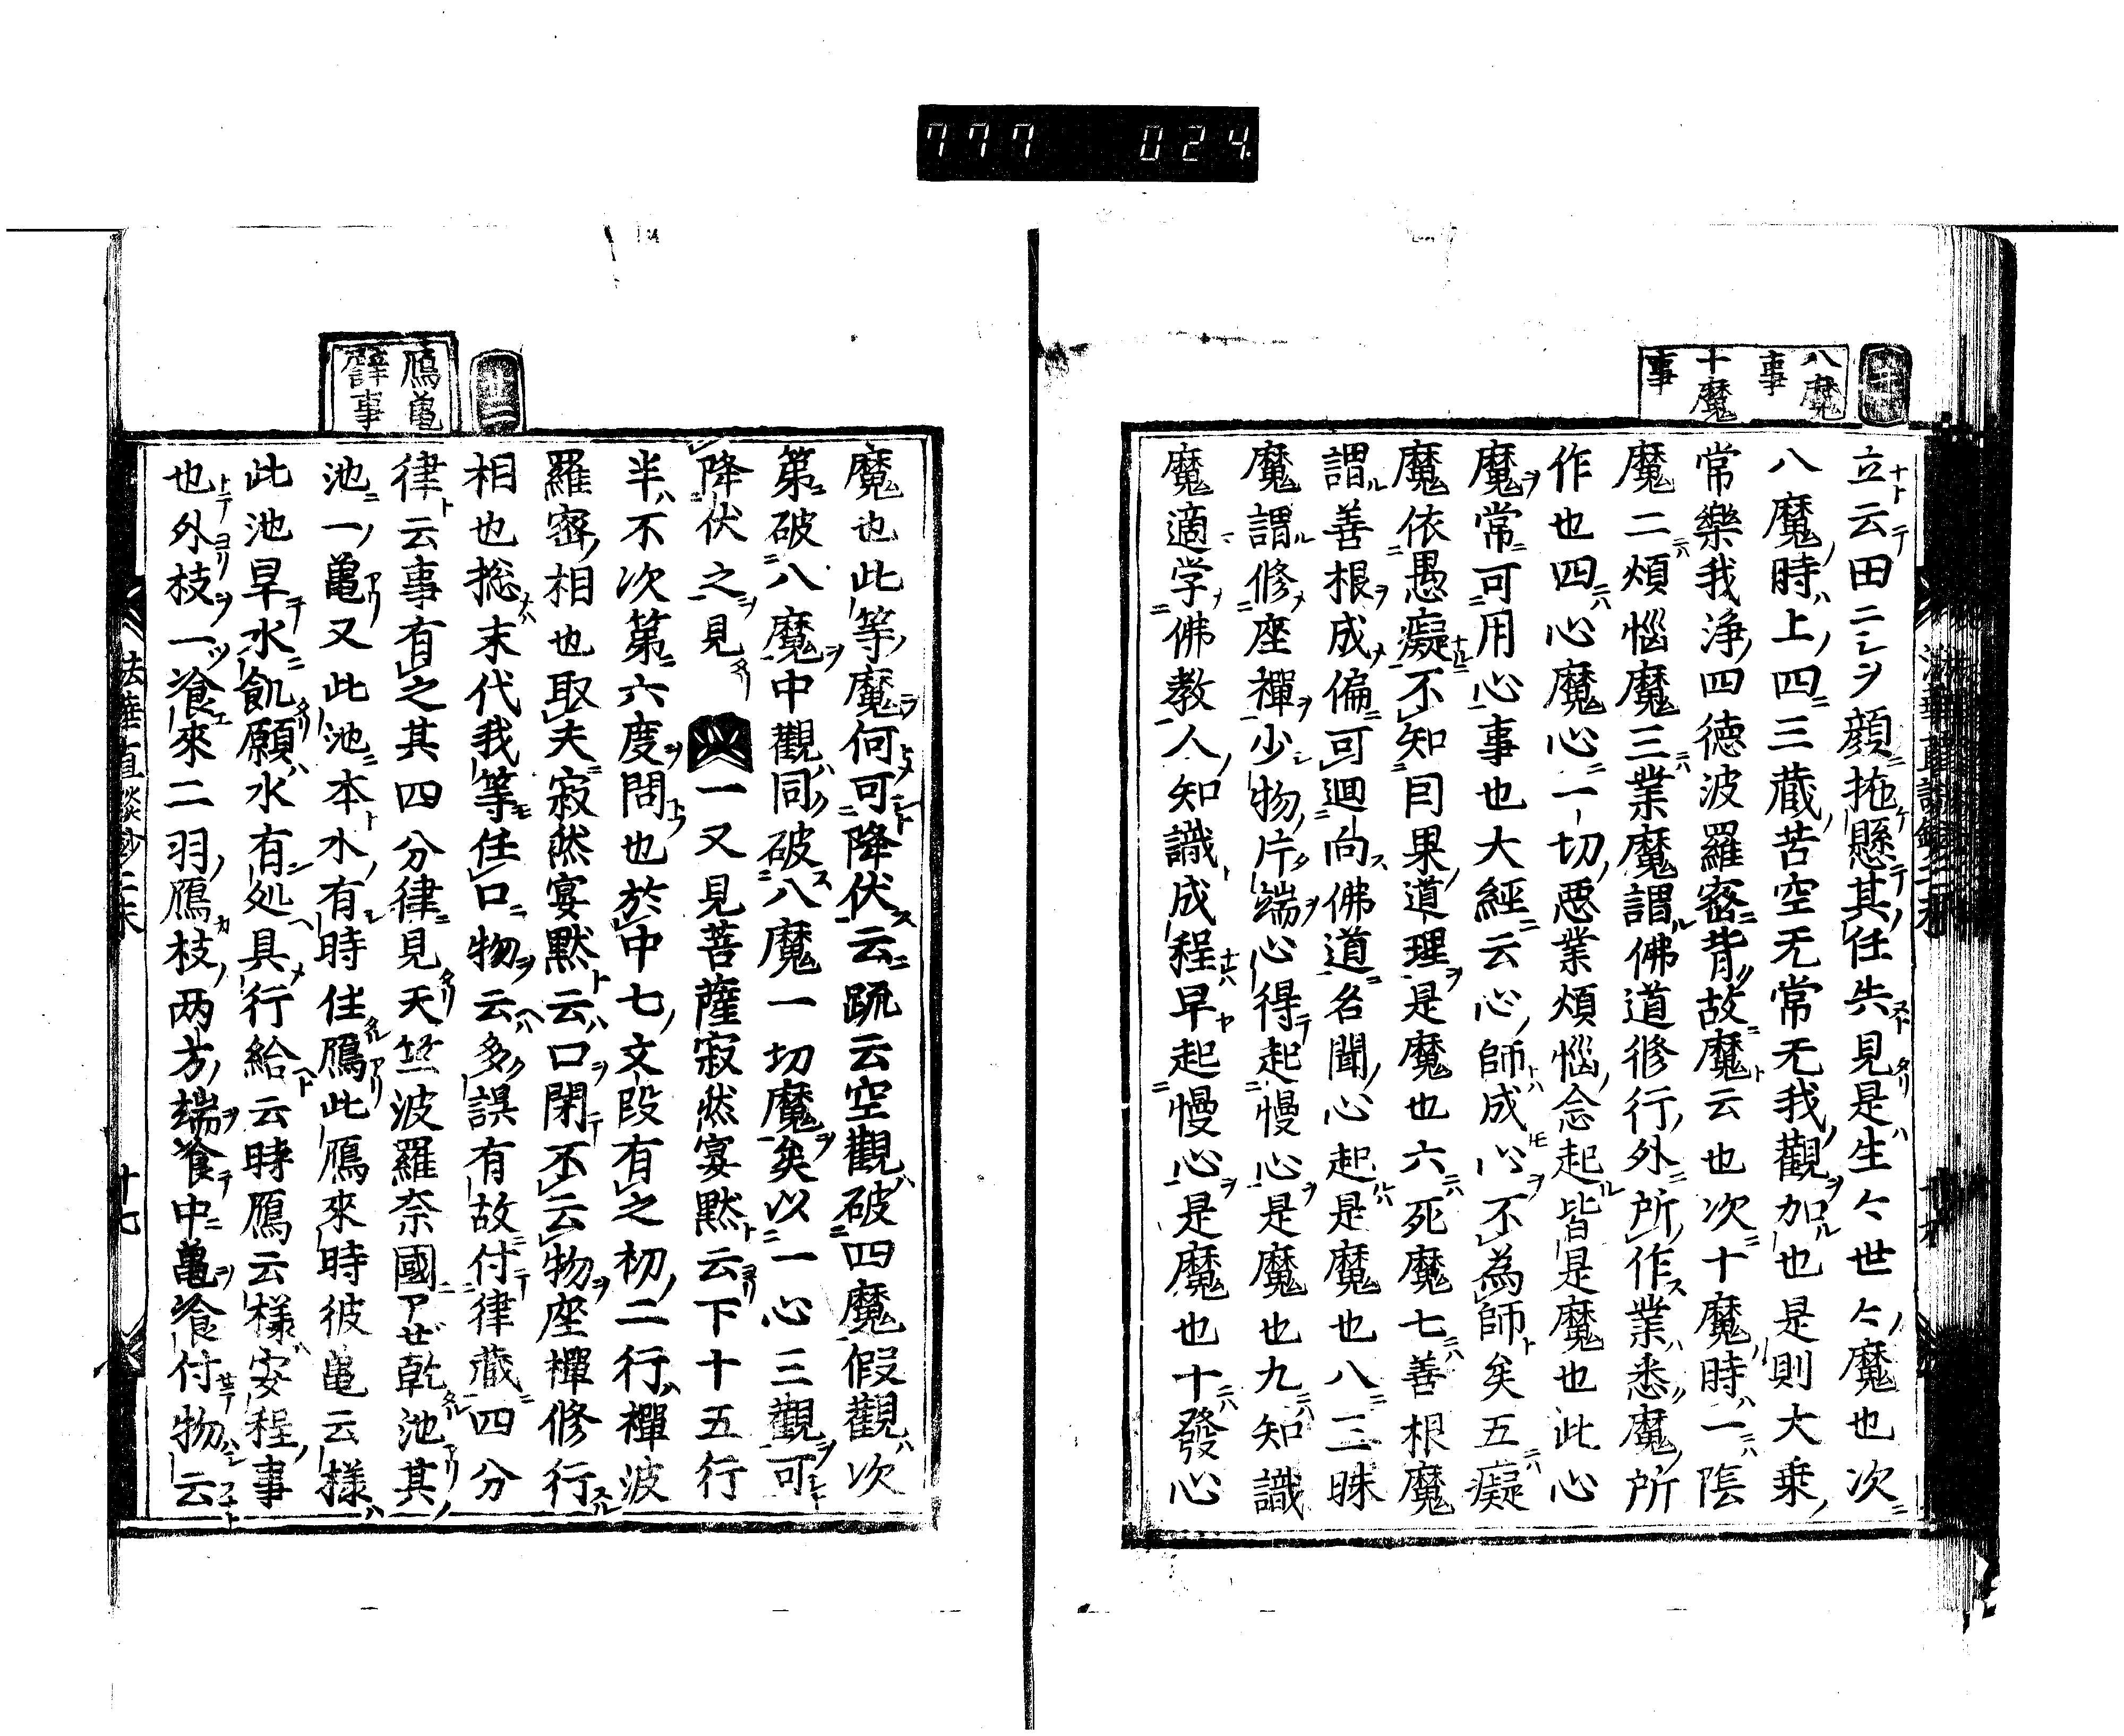 777 024
八魔
事
十魔
事
立云田ニシヲ顔拖懸其任失見是生々世々魔也次
八魔時上四三蔵苦空无常无我觀加也是則大乗
常樂我浄四徳波羅密背故魔云也次十魔時一陰
魔二煩惱魔三業魔謂佛道修行外所作業悉魔所
作也四心魔心一切悪業煩惱念起皆是魔也此心
魔常可用心事也大經云心師成心不為師矣五癡
魔依愚癡不知因果道理是魔也六死魔七善根魔
謂善根成偏可廻向佛道名聞心起是魔也八三昧
魔謂修座禪少物片端心得起慢心是魔也九知識
魔適学佛教人知識成程早起慢心是魔也十發心
十二
鴈亀
譬事
魔也此等魔何可降伏云䟽云空觀破四魔假觀次
第破八魔中觀同破八魔一切魔矣以一心三觀可
降伏之見 一又見菩薩寂然宴黙云下十五行
半不次第六度問也於中七文段有之初二行禪波
羅密相也取夫寂然宴黙云口閇不云物座禪修行
相也捴末代我等任口物云多誤有故付律蔵四分
律云事有之其四分律見天竺波羅奈國アゼ乾池其
池一亀又此池本水有時住鴈此鴈來時彼亀云様
此池旱水飢願水有処具行給云時鴈云様安程事
也外枝一飡來二羽鴈枝两方端飡中亀飡付物云
法華直談鈔二末 十七